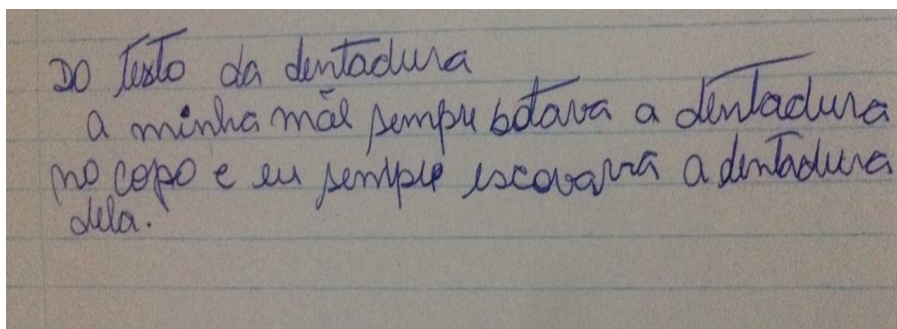 DO Texto da dentadura
a minha mãe sempre botava a dentadura
no copo e eu sempre escovava a dentadura
dela.